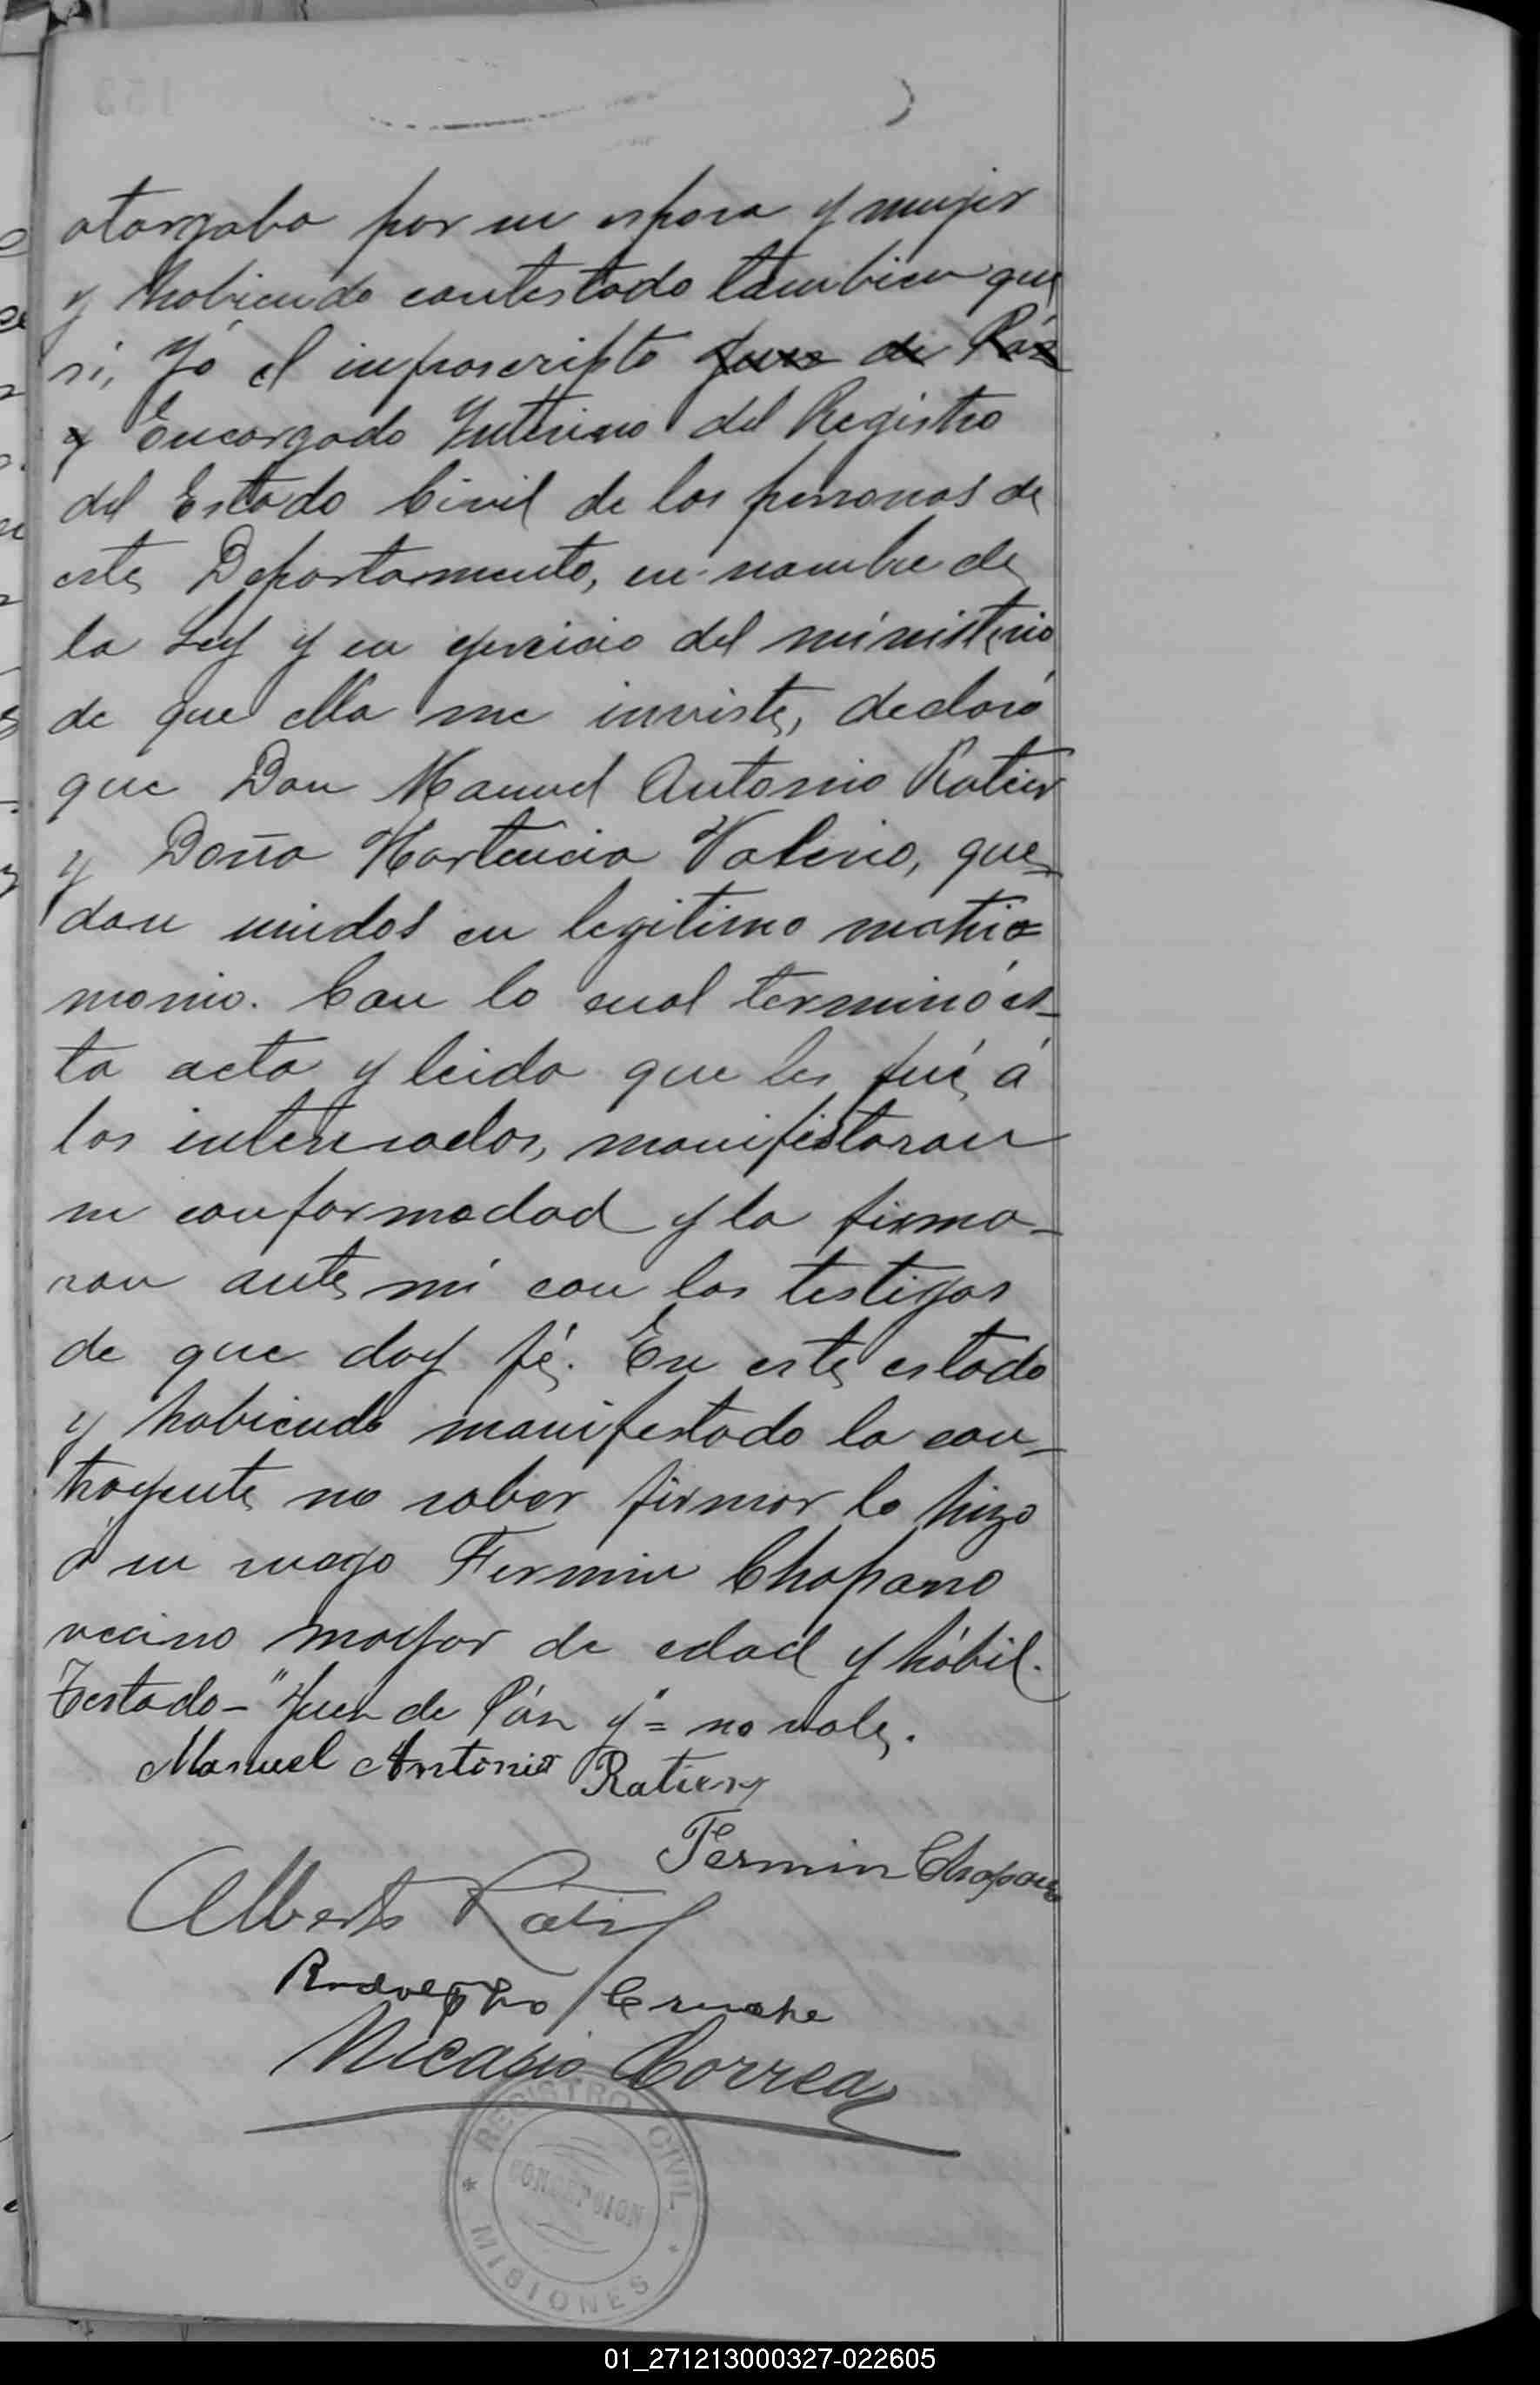 otorgaba por su esposa y mujer
y habiendo contestado tambien que
si, Yó el infrascripto Juez de Páz
y Encargado Interino del Registro
del Estado Civil de las personas de
este Departamento, en nombre de
la Ley y en ejercicio del ministerio
de que ella me inviste, declaró
que Don Manuel Antonio Ratier
y Doña Hortencia Valerio, que-
dan unidos en legitimo matri=
monio. Con lo cual terminó es-
ta acta y leida que les fué á
los interesados, manifestaron
su conformadad y la firma-
ron ante mi con los testigos
de que doy fé. En este estado
y habiendo manifestado la con-
trayente no saber firmar lo hizo
á su ruego Fermin Chapano
vecino mayor de edad y hábil.
Testado - "Juez de Páz y" = no vale.
Manuel Antonio Ratier
Fermin Chapano
Alberto Ratier
Rodolpho
Nicasio Correa
REGISTRO CIVIL
CONCEPCION
* MISIONES *
01_271213000327-022605